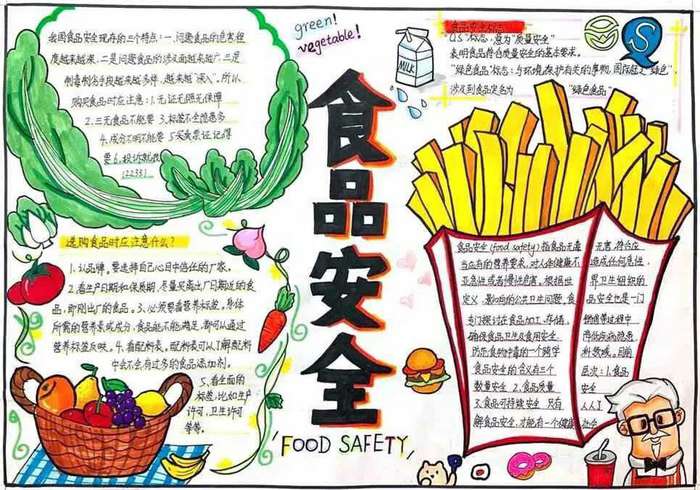 我国食品安全现存的三个特点:一.问题食品的危害程
度越来越深.二是问题食品的涉及面越来越广.三是
制毒制劣手段越来越多样,越来越"深入".所以,
购买食品时应注意:1.无证无照无保障
2.三无食品不能要 3.标签不全隐患多
4.成分不明不能要 5.买卖票证记得
要 6.投诉就找
12331
green!
vegetable!
MILK
食品安全标志
"QS"标志,意为"质量安全"
表明食品符合质量安全的基本要求。
"绿色食品"标志:与环境保护有关的事物,国际
涉及到食品定名为 "绿色食品"
食品安全
FOOD SAFETY
选购食品时应注意什么?
1.认品牌。要选择自己心目中信任的厂家。
2.看生产日期和保质期,尽量买离出厂日期近的食
品,即刚出厂的食品。3.必须要看营养标签,身体
所需的营养素或成分,食品能不能满足,都可以通过
营养标签反映。4.看配料表。配料表可以了解配料
中会不会有过多的食品添加剂。
5.看全面的
标签,比如生产
许可,卫生许可
等等。
食品安全(food safety)指食品无毒 无害,符合应
当应有的营养要求,对人体健康不 造成任何急性
亚急性或者慢性危害。根据世 界卫生组织的
定义,影响的公共卫生问题,食 品安全也是一门
专门探讨在食品加工.存储. 销售等过程中
确保食品卫生及食用安全
所示食物中毒的一个跨学 科领域。目前
食品安全的含义有三个 层次:1.食品
数量安全 2.食品质量 安全
3.食品可持续安全 只有 人人
解食品安全,才能有一个健康 社会